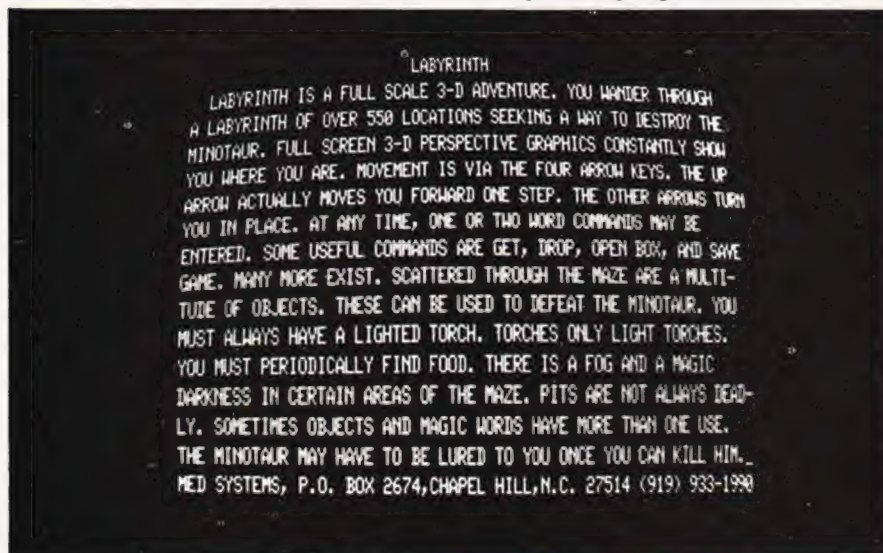 LABYRINTH
LABYRINTH IS A FULL SCALE 3-D ADVENTURE. YOU WANDER THROUGH
A LABYRINTH OF OVER 550 LOCATIONS SEEKING A WAY TO DESTROY THE
MINOTAUR. FULL SCREEN 3-D PERSPECTIVE GRAPHICS CONSTANTLY SHOW
YOU WHERE YOU ARE. MOVEMENT IS VIA THE FOUR ARROW KEYS. THE UP
ARROW ACTUALLY MOVES YOU FORWARD ONE STEP. THE OTHER ARROWS TURN
YOU IN PLACE. AT ANY TIME, ONE OR TWO WORD COMMANDS MAY BE
ENTERED. SOME USEFUL COMMANDS ARE GET, DROP, OPEN BOX, AND SAVE
GAME. MANY MORE EXIST. SCATTERED THROUGH THE MAZE ARE A MULTI-
TUDE OF OBJECTS. THESE CAN BE USED TO DEFEAT THE MINOTAUR. YOU
MUST ALWAYS HAVE A LIGHTED TORCH. TORCHES ONLY LIGHT TORCHES.
YOU MUST PERIODICALLY FIND FOOD. THERE IS A FOG AND A MAGIC
DARKNESS IN CERTAIN AREAS OF THE MAZE. PITS ARE NOT ALWAYS DEAD-
LY. SOMETIMES OBJECTS AND MAGIC WORDS HAVE MORE THAN ONE USE.
THE MINOTAUR MAY HAVE TO BE LURED TO YOU ONCE YOU CAN KILL HIM._
MED SYSTEMS, P.O. BOX 2674,CHAPEL HILL,N.C. 27514 (919) 933-1990